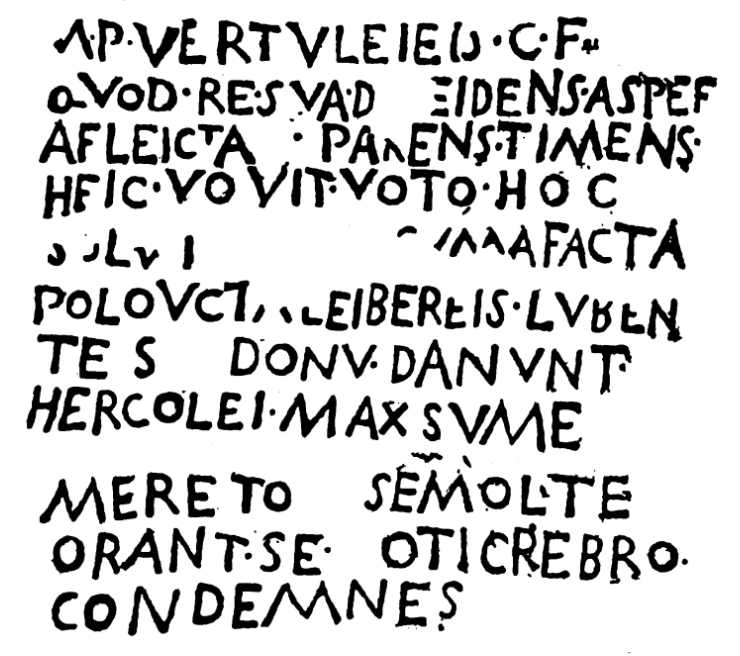 M·P·VERTVLEIEIS·C·F·
QVOD·RE·SVA·D EIDENS·ASPER
AFLEICTA · PARENS·TIMENS·
HEIC·VOVIT·VOTO·HOC
SOLV MAFACTA
POLOVCTA LEIBEREIS·LVBEN
TES DONV·DANVNT·
HERCOLEI·MAXSVME
MERETO SEMOL·TE
ORANT·SE· OTICREBRO·
CONDEMNES